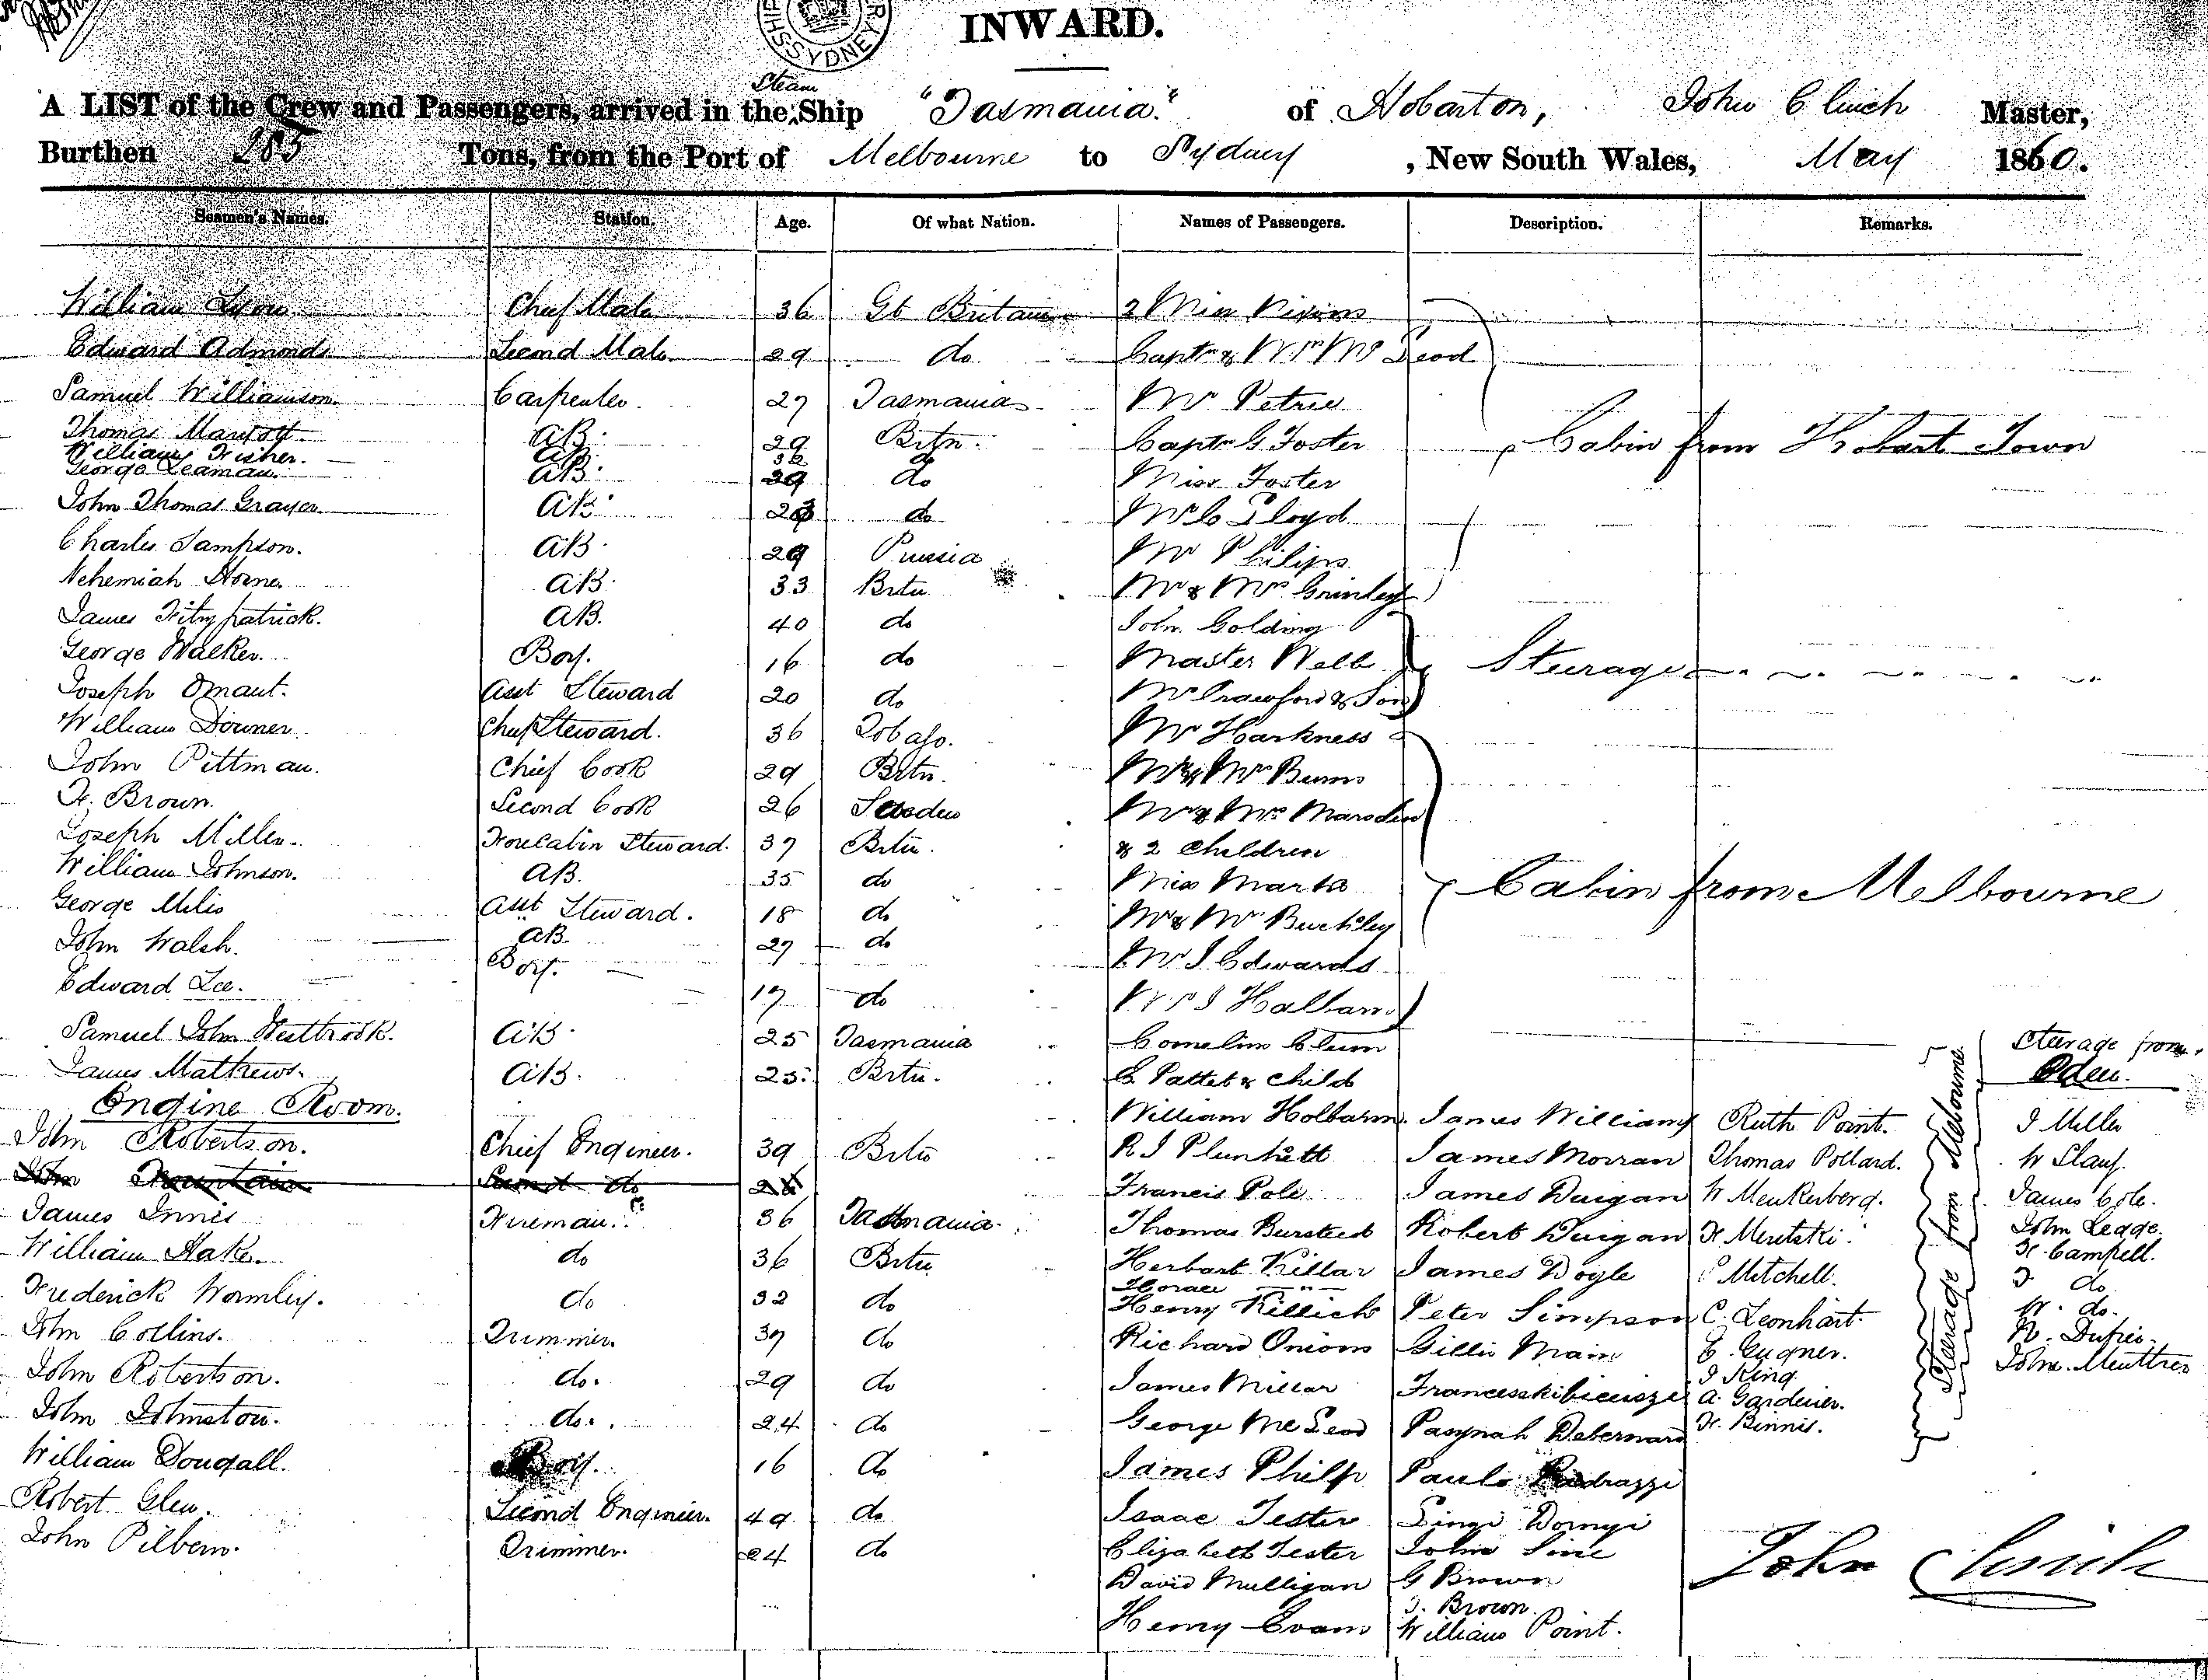 INWARD.
Steam
A LIST of the Crew and Passengers, arrived in the Ship "Tasmania" of Hobarton, John Clinch Master,
Burthen 285 Tons, from the Port of Melbourne to Sydney, New South Wales, May 1860.
Seamen's Names. Station. Age. Of what Nation. Names of Passengers. Description. Remarks.
William Lyon Chief Mate 36 Gt Britain 2 Miss
Edward Admonds Second Mate 29 do Captn & Mrs McLeod
Samuel Williamson. Carpenter. 27 Tasmania Mr Petrie
Thomas AB. 29 Britn. Captn G Foster Cabin from Hobart Town
William Fisher. AB 32 do
George Leaman. AB. 29 do Miss Foster
John Thomas Grayer AB. do Mr C Lloyd
Charles Sampson. AB. 29 Prussia Mr Philips
Nehemiah Horne. AB. 33 Britn Mr & Mrs Grinley
James Fitzpatrick. AB. 40 do John Golding
George Walker. Boy. 16 do Master Webb Steerage
Joseph Omant. Asst Steward 20 do Mr Crawford & Son
William Downer Chief Steward. 36 Tobago. Mr Harkness
John Pittman. Chief Cook 29 Britn. Mr & Mrs Burns
F. Brown. Second Cook 26 Sweden Mr & Mrs Marsden
Joseph Miller. Forecabin Steward. 37 Britn. & 2 Children
William Johnson. AB. 35 do Miss Marks Cabin from Melbourne
George Milis Asst Steward. 18 do Mr & Mrs Buckley
John Walsh. AB. 27 do Mr J Edwards
Edward Lee. Boy. 17 do Mrs J Halbarn
Samuel John Westbrook. AB. 25 Tasmania Cornelius Clum Steerage from
James Mathews. AB. 25. Britn. & Child Eden.
Engine Room. William Holbarn. James Williams Ruth Point. J Miller
John Robertson. Chief Engineer. 39 Britn R J Plunkett James Morran Thomas Pollard. W Slay.
John Fountain Second do 26 Francis Pole James Duigan W Menkerberg. James Cole.
James Innis Fireman. 36 Tasmania. Thomas Bursteed Robert Duigan F. John Legge.
William Hake. do 36 Britn Herbart Killar James Doyle Mitchell. F. Campell.
Horace
Frederick Wormley. do 32 do Henry Killick Peter Simpson C. Leonhart. J do
W. do.
John Collins. Trimmer. 37 do Richard Onions Gillis Main E. Gugner. N. Dufrie.
John Robertson. do. 29 do James Millar J King John Menttrer
A. Gardener.
John Johnston. do. 24 do George McLeod F. Binnis.
Steerage from Melbourne.
William Dougall. Boy. 16 do James Philp Paulo Pedrazzi
Robert Glen. Second Engineer. 49 do Isaac Tester
John Pilbern. Trimmer. 24 do Elizabeth Tester John Sine John Clinch
David Mulligan G Brown
J. Brown
Henry Evans William Point.